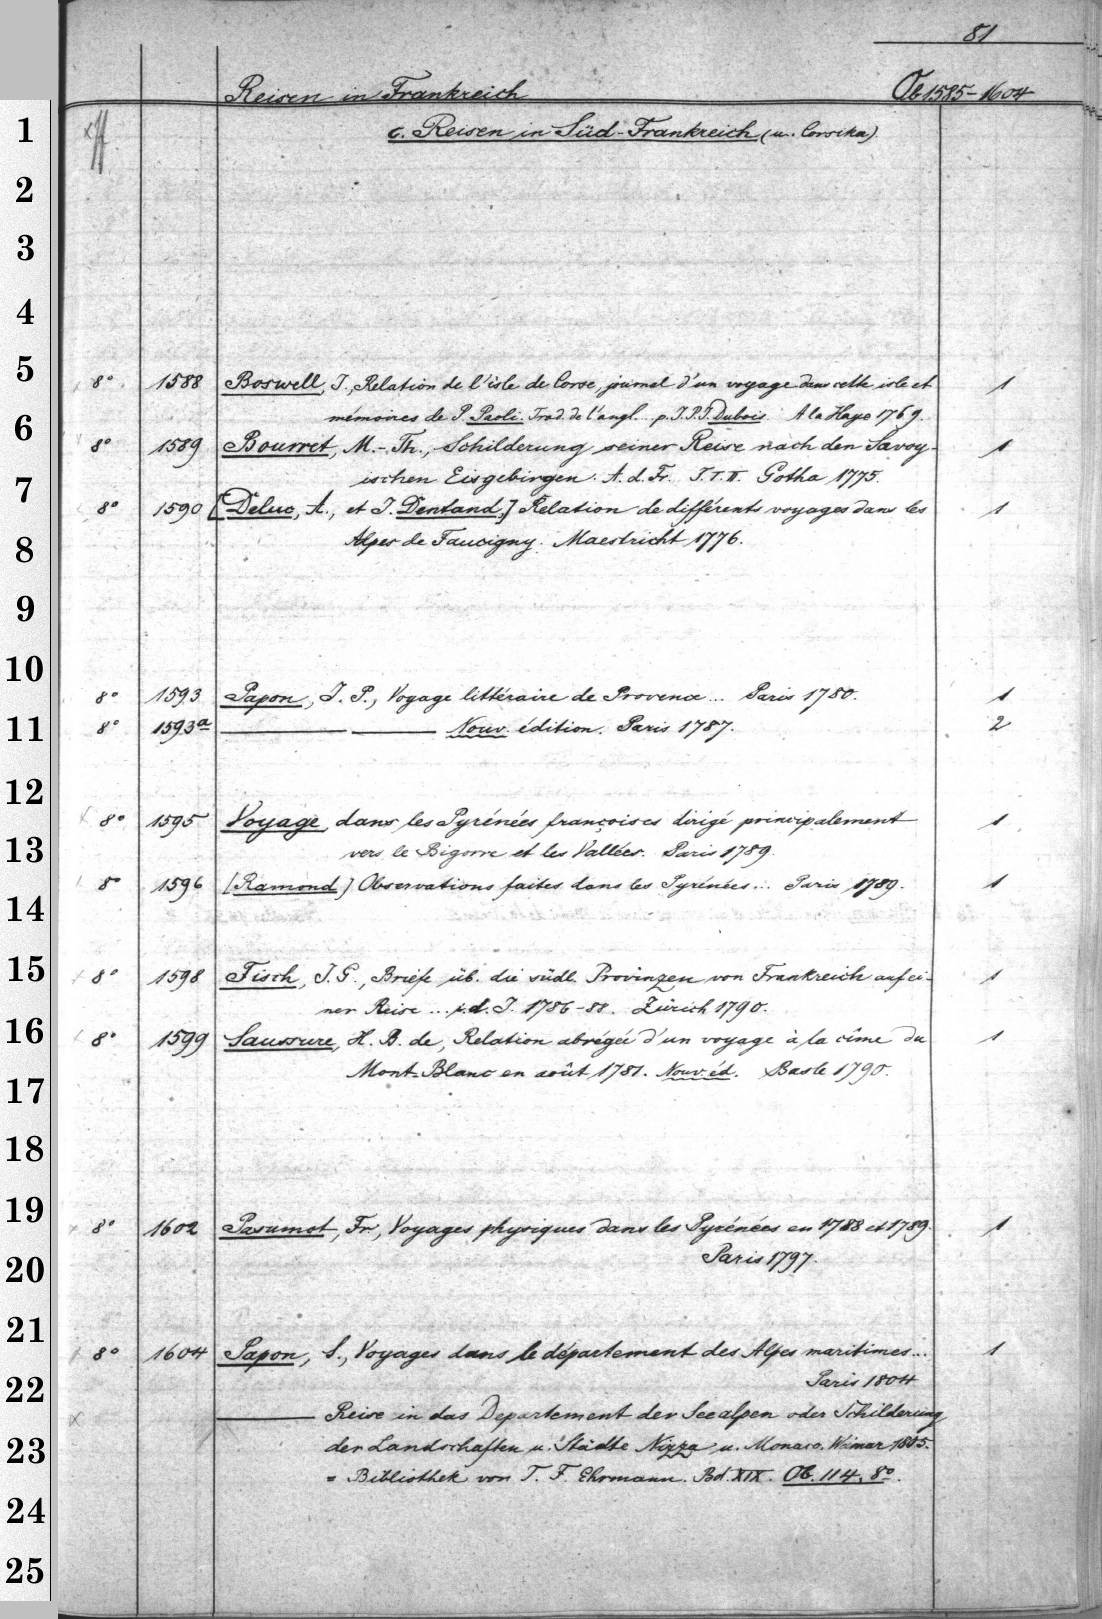 81
Reisen in Frankreich Ob 1585-1604
c. Reisen in Süd-Frankreich (u. Corsika)
8° 1588 Boswell, J., Relation de l'isle de Corse, journal d'un voyage dans cette isle et 1
mémoires de P. Paoli. Trad. de l'angl. p. J.P.J. Dubois. A la Haye 1769.
8° 1589 Bourret, M.-Th., Schilderung seiner Reise nach den Savoy- 1
ischen Eisgebirgen. A. d. Fr. T. I. II. Gotha 1775.
8° 1590 [Deluc, A., et J. Dentand,] Relation de différents voyages dans les 1
Alpes de Faucigny. Maestricht 1776.
8° 1593 Papon, J. P., Voyage littéraire de Provence... Paris 1780. 1
8° 1593a Nouv. édition. Paris 1787. 2
8° 1595 Voyage dans les Pyrénées françoises dirigé principalement 1
vers le Bigorre et les Vallées. Paris 1789.
8° 1596 [Ramond] Observations faites dans les Pyrénées... Paris 1789. 1
8° 1598 Fisch, J. G., Briefe üb. die südl. Provinzen von Frankreich auf ei- 1
ner Reise ... i. d. J. 1786-88. Zürich 1790.
8° 1599 Saussure, H. B. de, Relation abrégée d'un voyage à la cîme du 1
Mont-Blanc en août 1781. Nouv. éd. Basle 1790.
8° 1602 Pasumot, Fr., Voyages physiques dans les Pyrénées en 1788 et 1789. 1
Paris 1797.
8° 1604 Papon, S., Voyages dans le département des Alpes maritimes... 1
Paris 1804
Reise in das Departement der Seealpen oder Schilderung
der Landschaften u. Städte Nizza u. Monaco. Weimar 1805.
= Bibliothek von T. F. Ehrmann. Bd. XIX. Ob. 114, 8°.
1
2
3
4
5
6
7
8
9
10
11
12
13
14
15
16
17
18
19
20
21
22
23
24
25